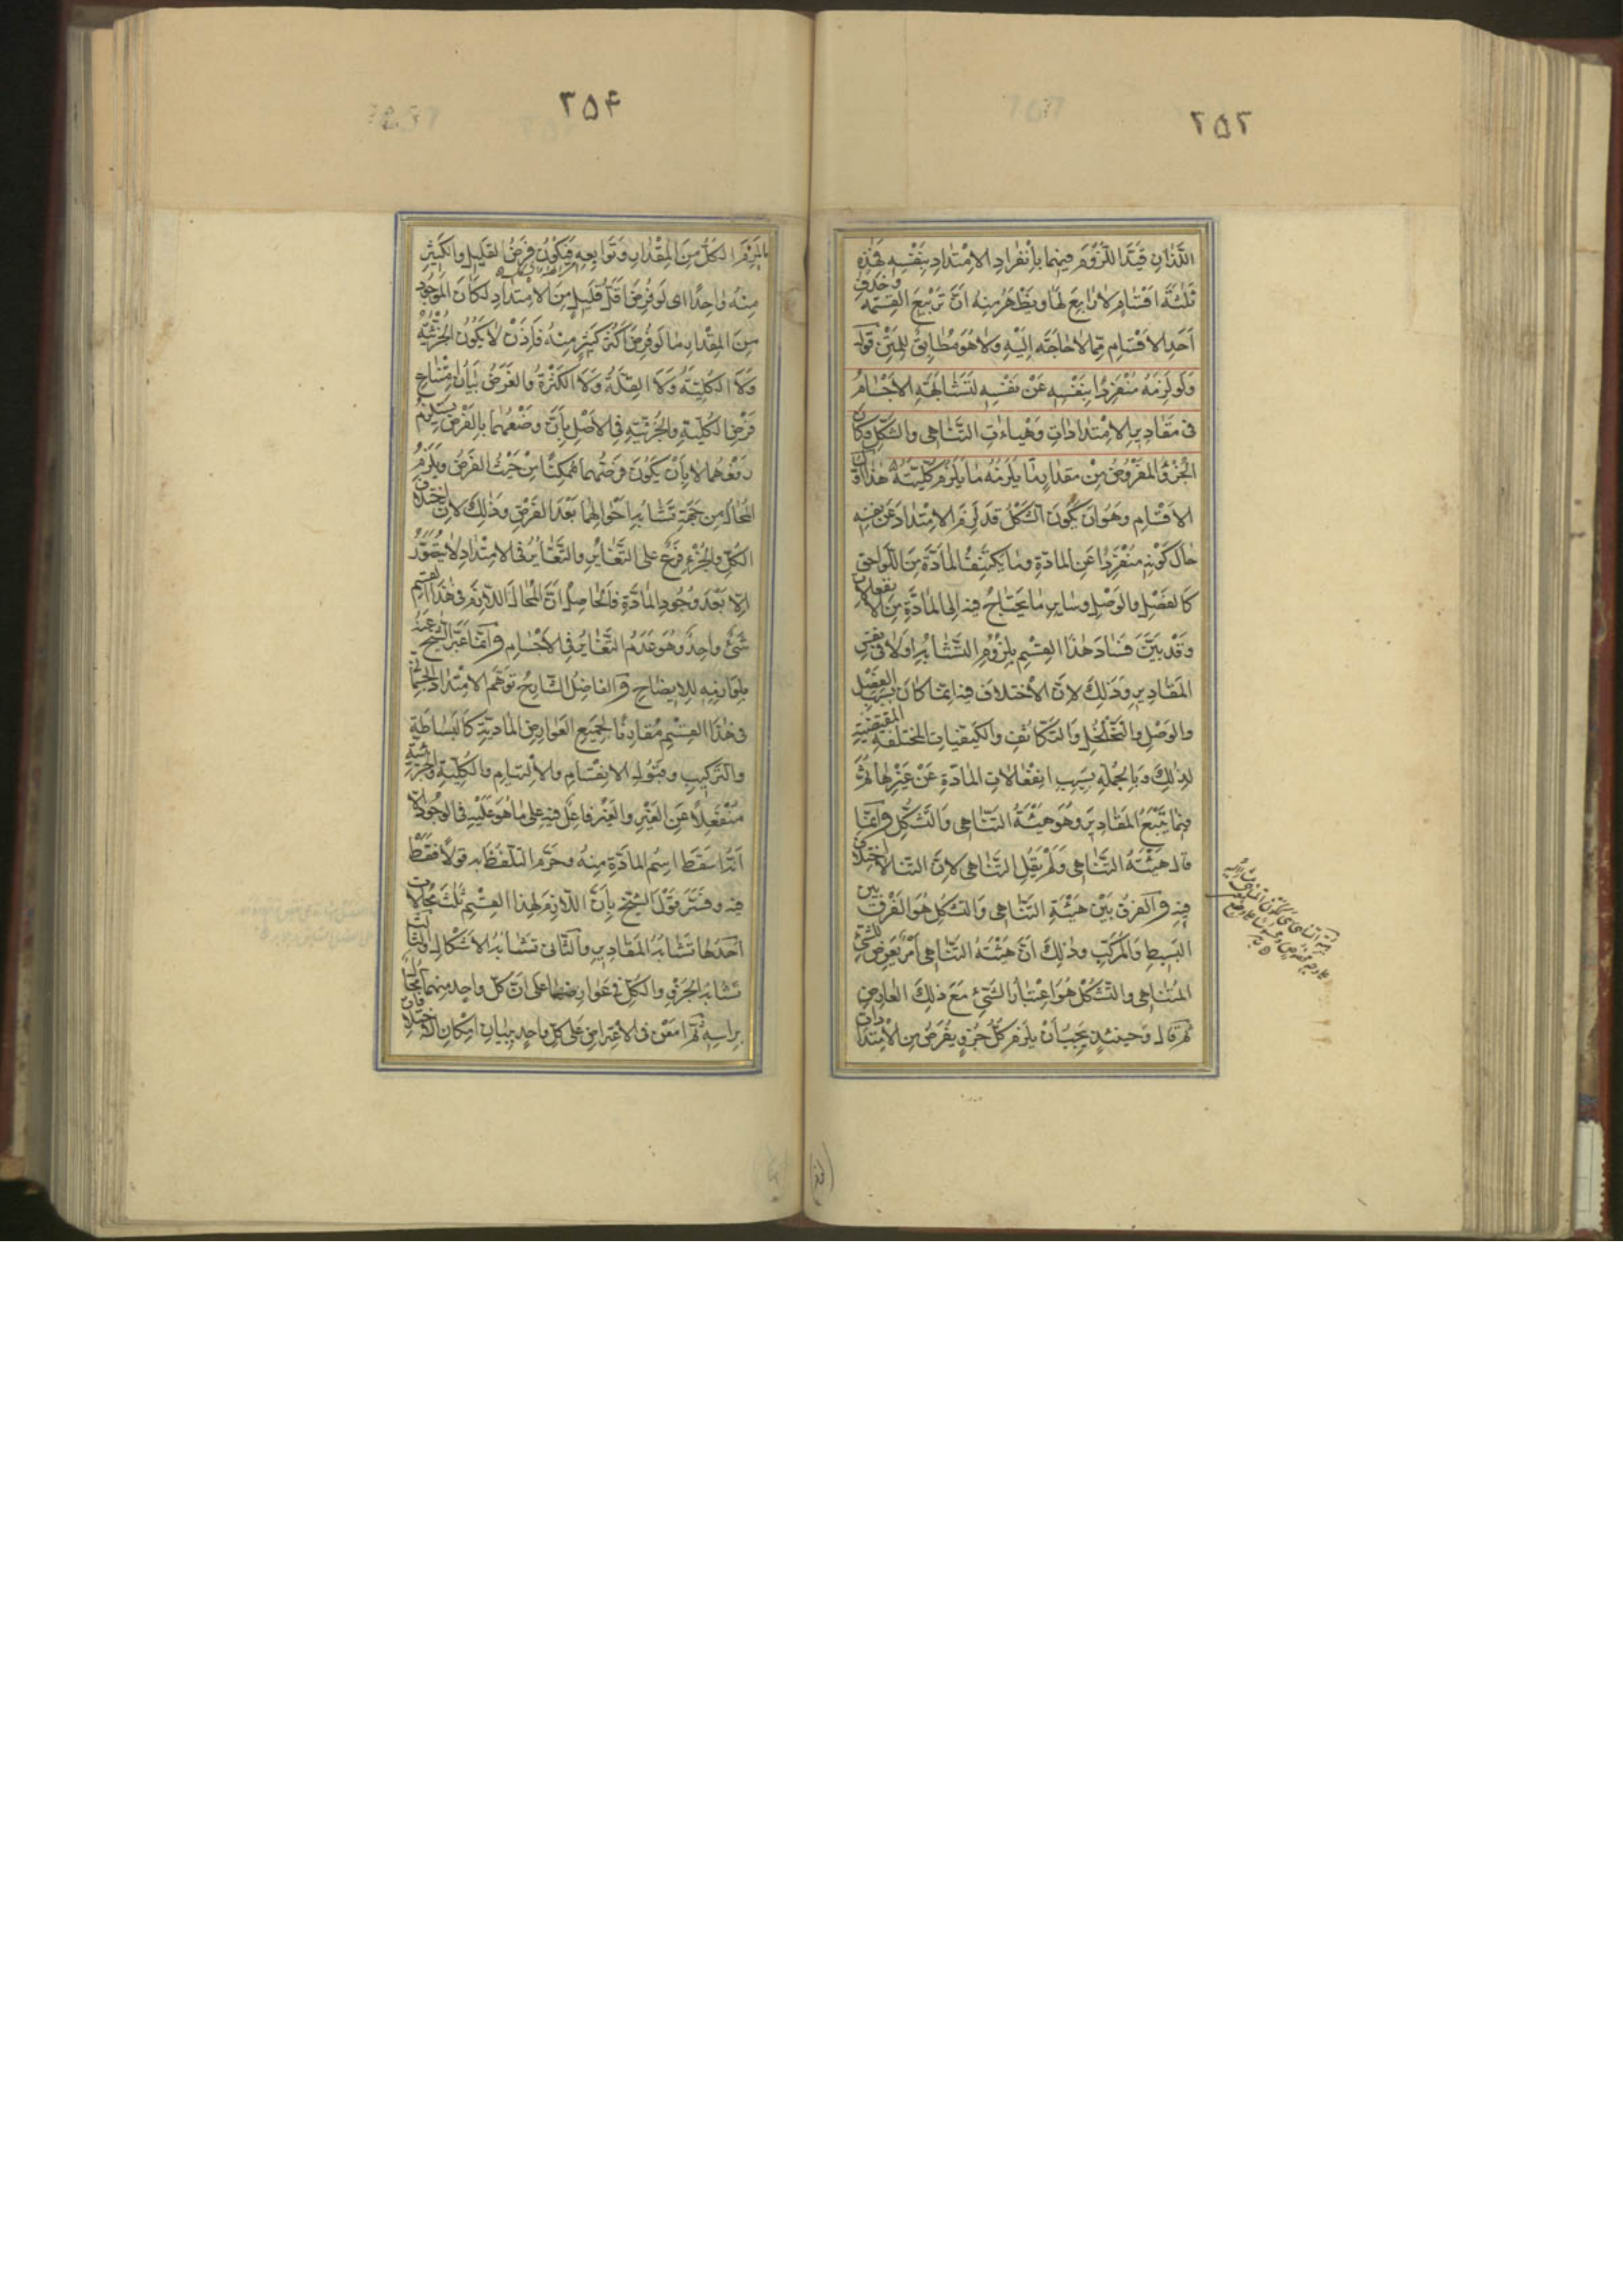 ٢٥٣
اللّذان قيّدا اللّزوم فيهما بانفراد الامتداد بنفسه فهذه
ثلثة اقسام لا رابع لها ويظهر منه ان تربيع القسمه وحذف
احد الاقسام ممّا لا حاجة اليه ولا هو مطابق للمتن قوله
ولو لزمه منفردا بنفسه عن نفسه لتشابهت الاجسام
فى مقادير الامتدادات وهيئات التناهى والتشكل وكان
الجزء المفروض من مقدار ما يلزمه ما يلزم كليّته هذا اوّل
الاقسام وهو ان يكون الشكل قد لزم الامتداد عن نفسه
حال كونه منفردا عن المادّة وما يكتنف المادّة من اللواحق
كالفصل والوصل وساير ما يحتاج فيه الى المادّة من الانفعالات
وقد بيّن فساد هذا القسم بلزوم التشابه اولا فى نفس
المقادير وذلك لان الاختلاف فيه انما كان بسبب الفصل
والوصل والتخلخل والتكاثف والكيفيات المختلفة المقتضية
لذلك وبالجملة بسبب انفعالات المادّة عن غيرها ثم
فيما يتبع المقادير وهو هيئة التناهى والتشكل وانما
قال هيئة التناهى ولم يقل التناهى لان التناهى لا اختلاف
فيه والفرق بين هيئة التناهى والتشكل هو الفرق بين
البسيط والمركب وذلك ان هيئة التناهى امر يعرض للشىء
المتناهى والتشكل هو اعتبار الشىء مع ذلك العارض
ثم قال وحينئذ يجب ان يلزم كل جزء يفرض من الامتداد
٢٥۴
ما يلزم الكل من المقدار وتوابعه فيكون فرض القليل والكثير
منه واحدا اى لو فرض اقل قليل من الامتداد لكان الموجود
من المقدار ما لو فرض اكثر كثير منه فاذن لا يكون الجزئية
ولا الكلية ولا القلة ولا الكثرة والغرض بيان امتناع
فرض الكلية والجزئية فى الاصل بان وضعهما بالفرض يستلزم
رفعهما لا بان يكون فرضهما ممكنا من حيث الفرض ويلزم
المحال من جهة تشابه احوالهما بعد الفرض وذلك لان اختلاف
الكل والجزء فرع على التغاير والتغاير فى الامتداد لا يتصوّر
الا بعد وجود المادّة فالحاصل ان المحال اللازم فى هذا القسم
شىء واحد وهو عدم التغاير فى الاجسام وانما عبّر الشيخ عنه
بلوازمه للايضاح والفاضل الشارح توهم الامتداد الجسمانى
فى هذا القسم مقارنا لجميع العوارض المادية كالبساطة
والتركيب وقبول الانقسام والالتيام والكلية والجزئية
منفعلا عن الغير والغير فاعل فيه على ما هو عليه فى الوجود الا
انه اسقط اسم المادّة منه وحرّم التلفظ به قولا فقط
فيه وفسّر قول الشيخ بان اللازم لهذا القسم ثلث محالات
احدها تشابه المقادير والثانى تشابه الاشكال والثالث
تشابه الجزء والكل فى عوارضها على ان كل واحد منهما محال
براسه ثم امعن فى الاعتراض على كل واحد ببيان امكان الاختلاف